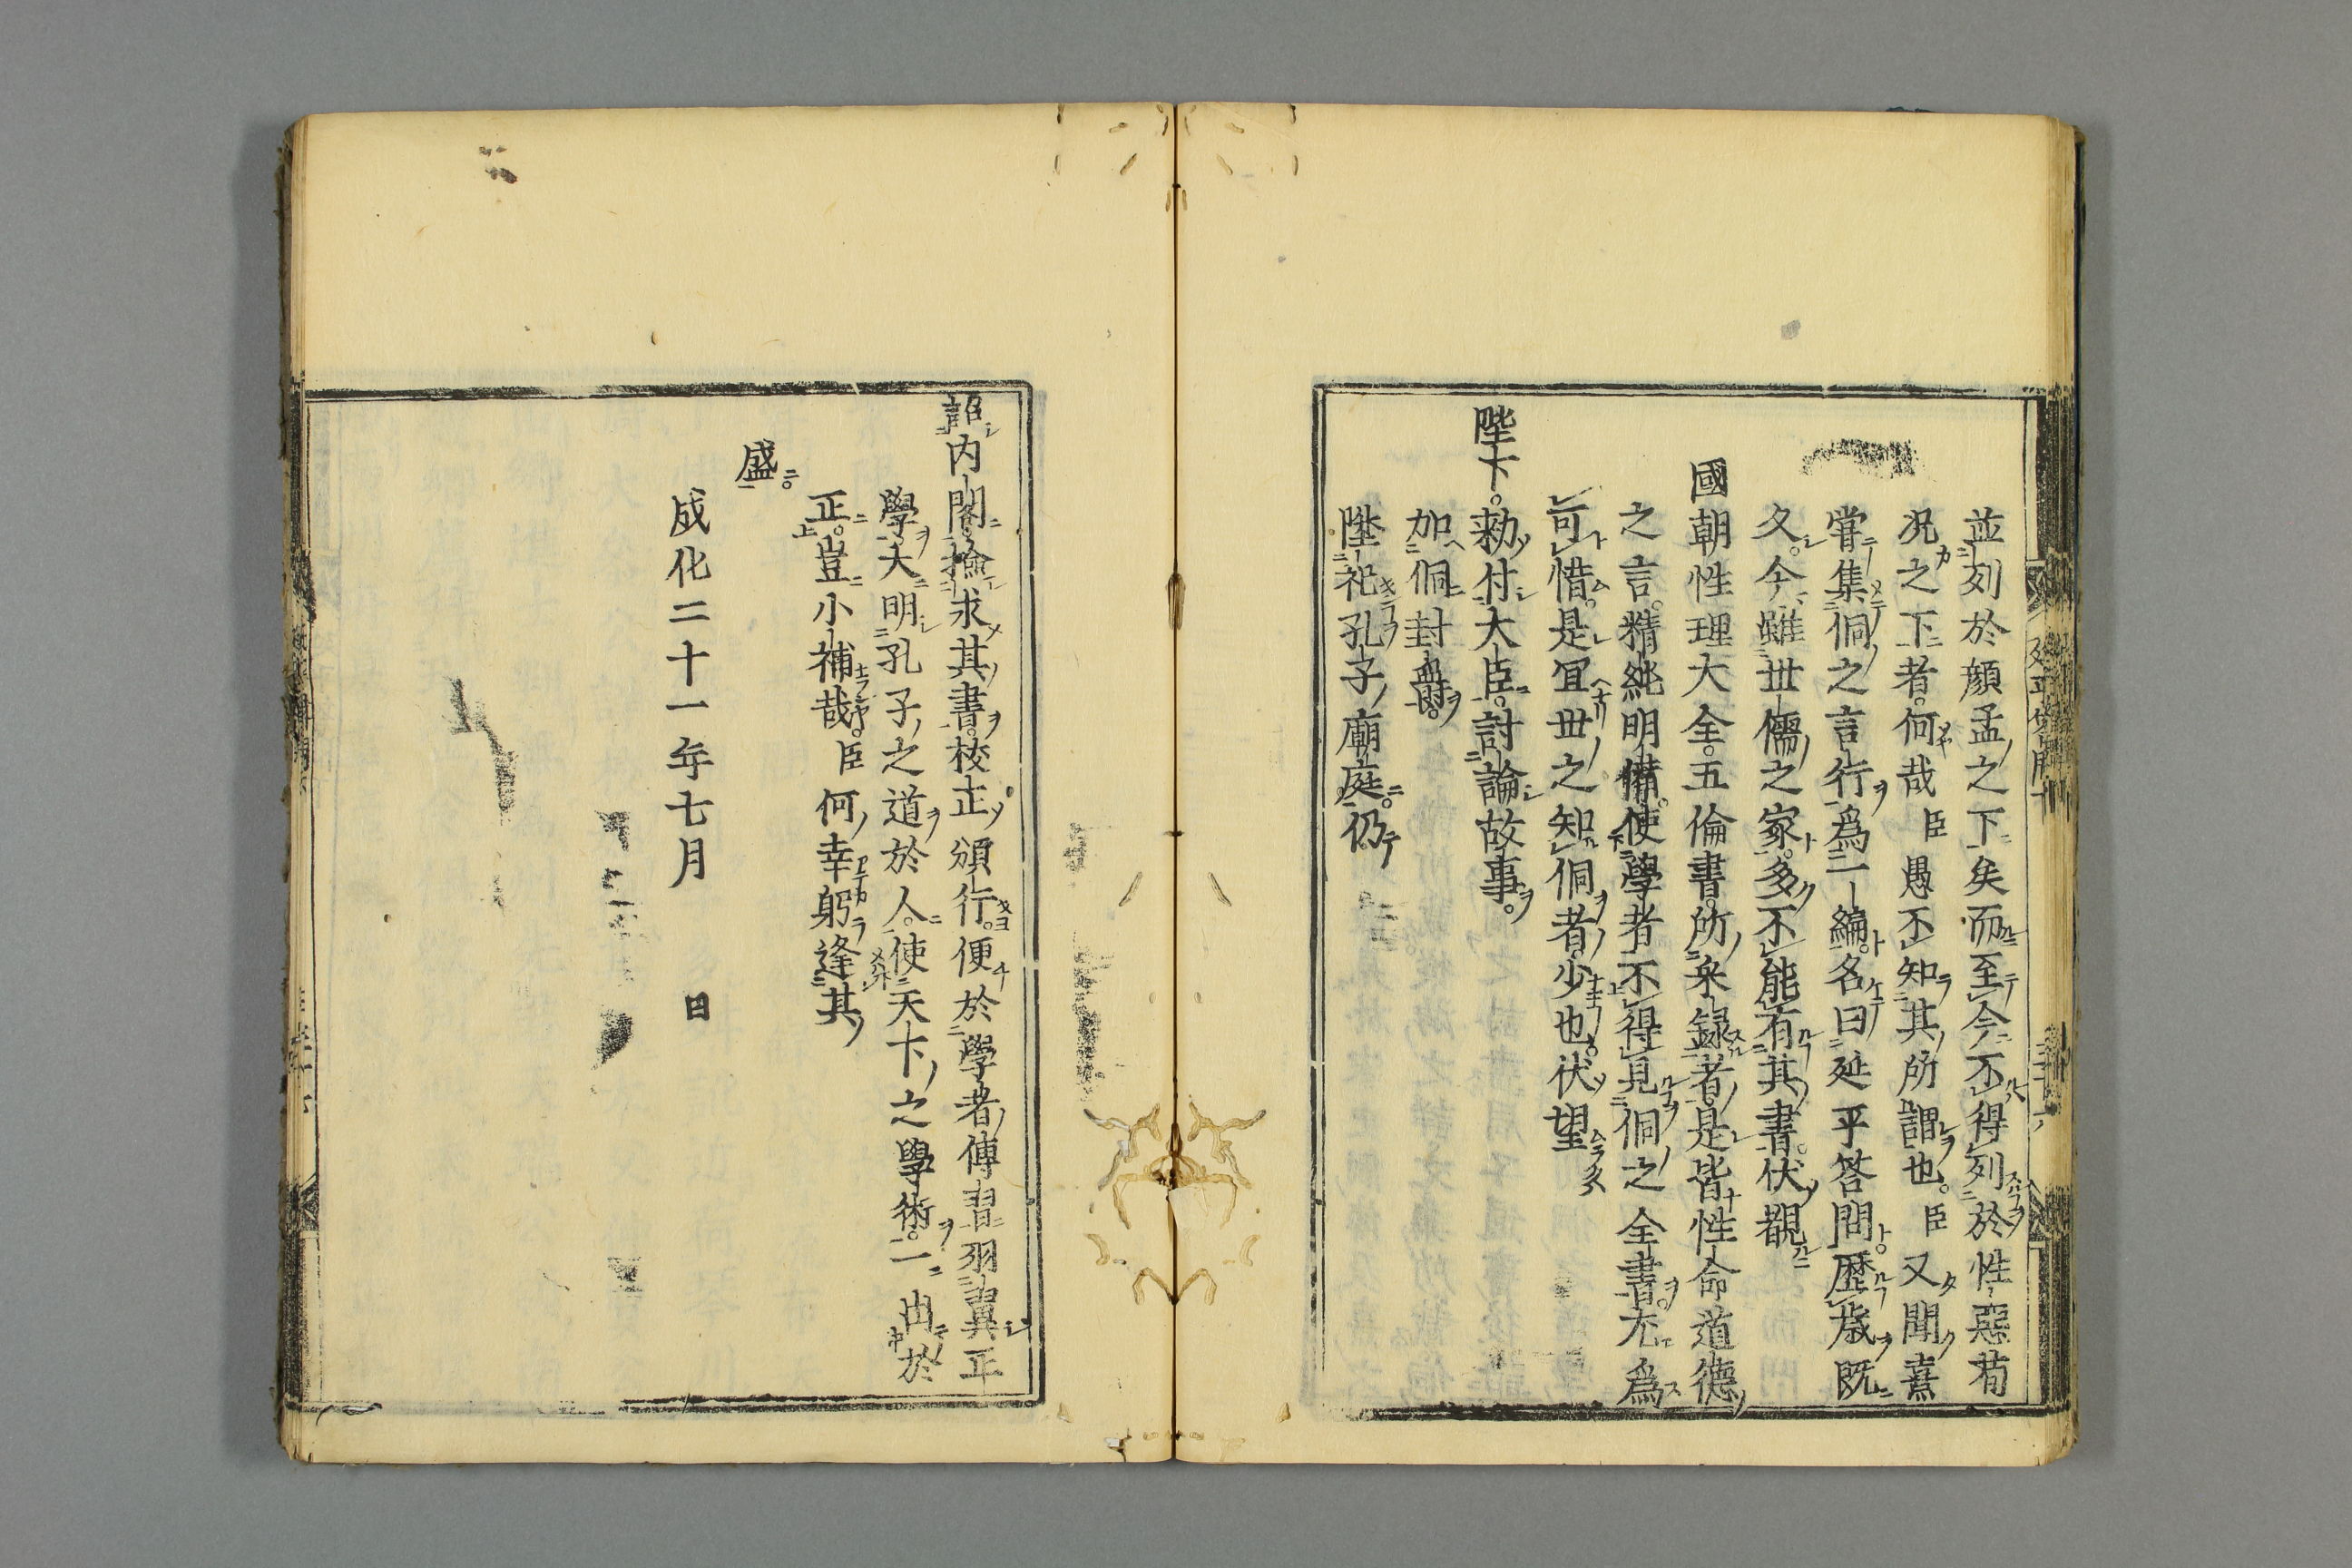 並列於顔孟之下矣而至今不得列於性惡荀
况之下者何哉臣愚不知其所謂也臣又聞熹
甞集侗之言行爲一編名曰延平答問歴歳既
久今雖世儒之家多不能有其書伏覩
國朝性理大全五倫書所采録者是皆性命道德
之言精純明備使學者不得見侗之全書尢爲
可惜是宜世之知侗者少也伏望
陛下勑付大臣討論故事
加侗封爵
陞祀孔子廟庭仍
詔内閣撿求其書校正頒行便於學者傳習羽翼正
學大明孔子之道於人使天下之學術一由於
正豈小補哉臣何幸躬逢其
盛
成化二十一年七月 日